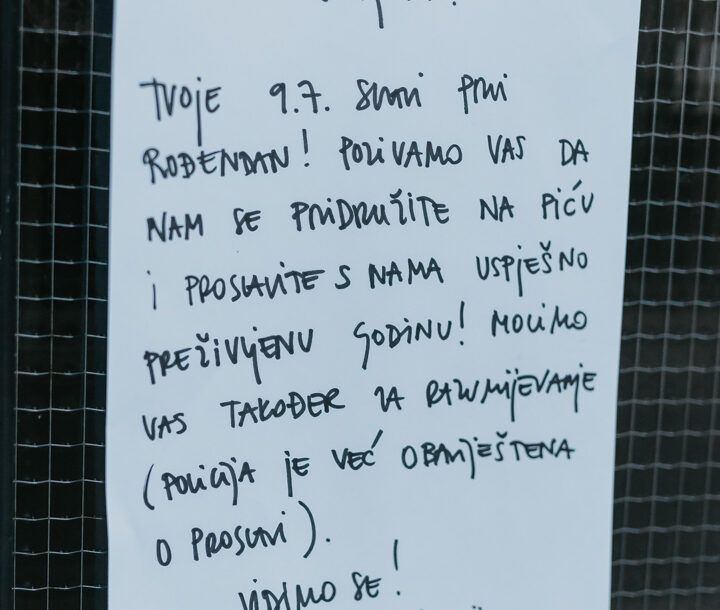 TVOJE 9.7. SLAVI PRVI
ROĐENDAN! POZIVAMO VAS DA
NAM SE PRIDRUŽITE NA PIĆU
I PROSLAVITE S NAMA USPJEŠNO
PREŽIVLJENU GODINU! MOLIMO
VAS TAKOĐER ZA RAZUMIJEVANJE
(POLICIJA JE VEĆ OBAVJEŠTENA
O PROSLAVI).
VIDIMO SE!